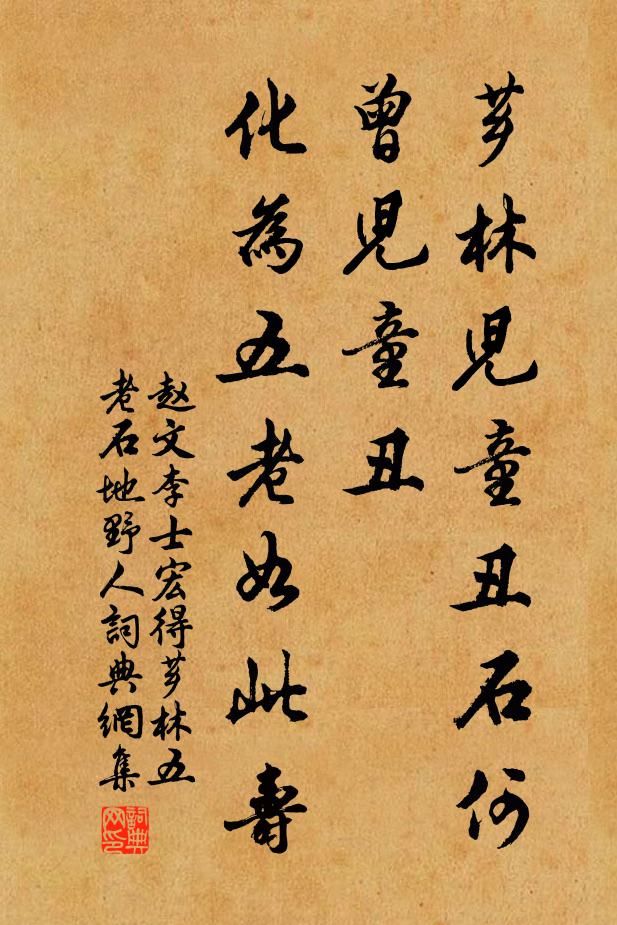 芗林兒童丑石何
曾兒童丑
化為五老如此壽
赵文李士宏得芗林五
老石地野人詞典網集
詞典
网印